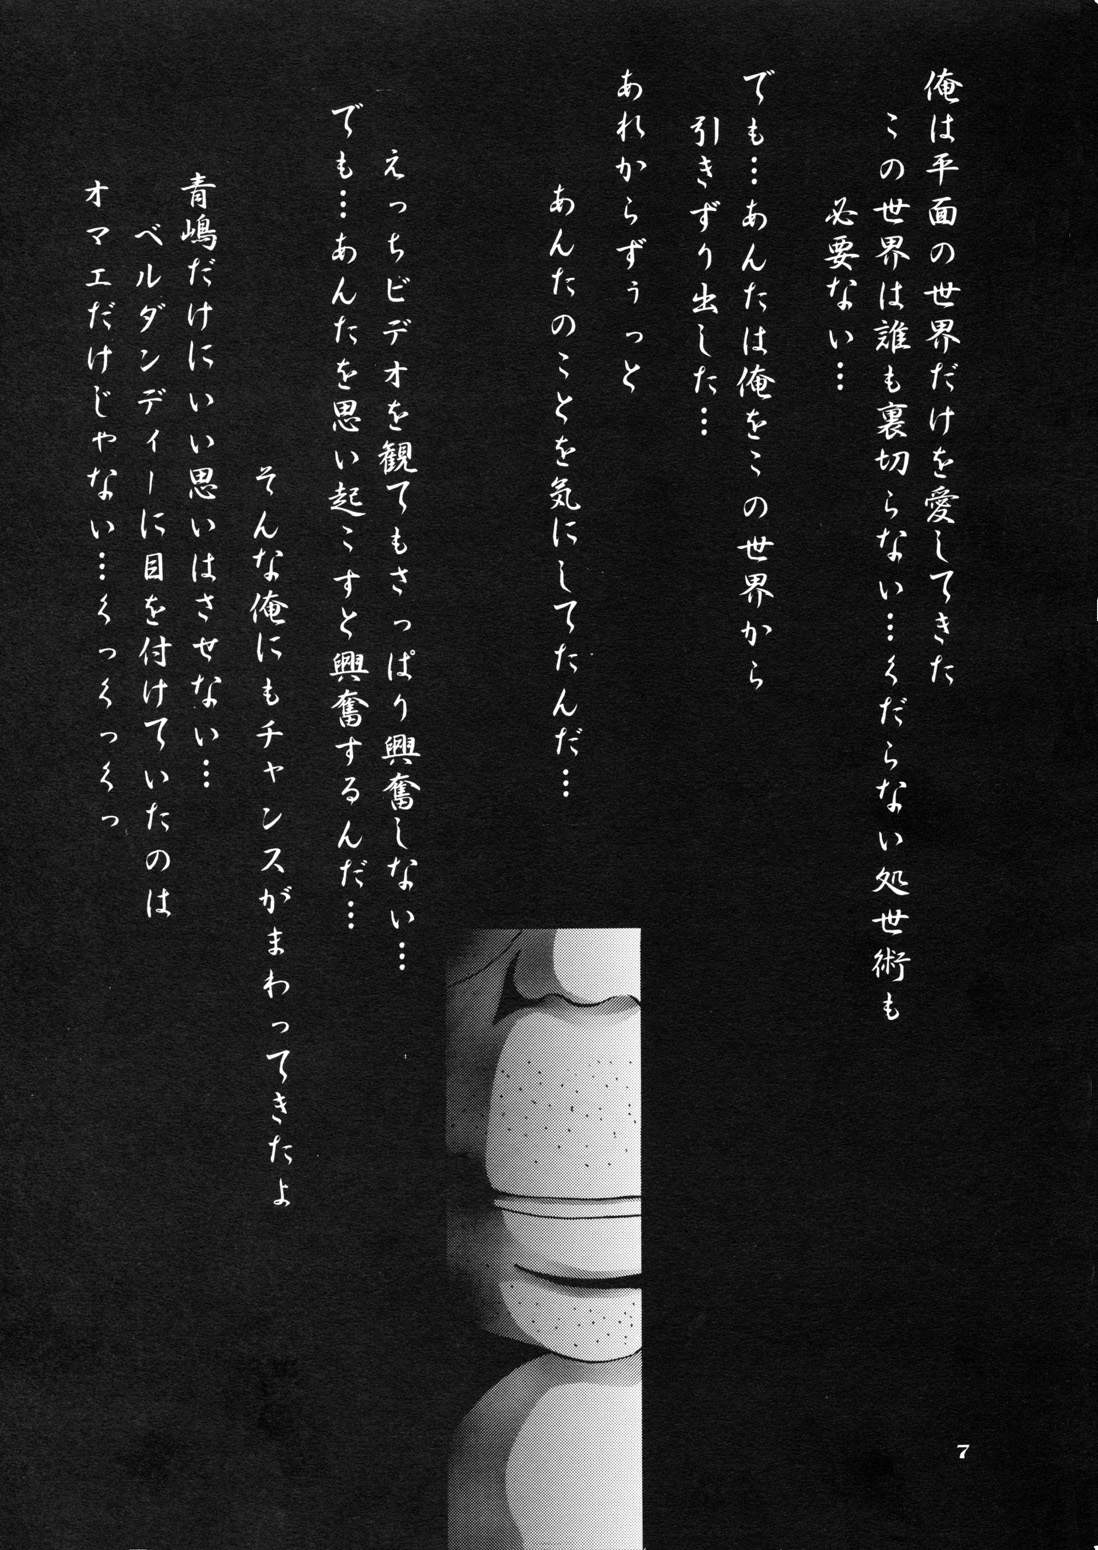 俺は平面の世界だけを愛してきた
この世界は誰も裏切らない…くだらない処世術も
必要ない…
でも…あんたは俺をこの世界から
引きずり出した…
あれからずぅっと
あんたのことを気にしてたんだ…
えっちビデオを観てもさっぱり興奮しない…
でも…あんたを思い起こすと興奮するんだ…
そんな俺にもチャンスがまわってきたよ
青嶋だけにいい思いはさせない…
ベルダンディーに目を付けていたのは
オマエだけじゃない…くっくっくっ
7